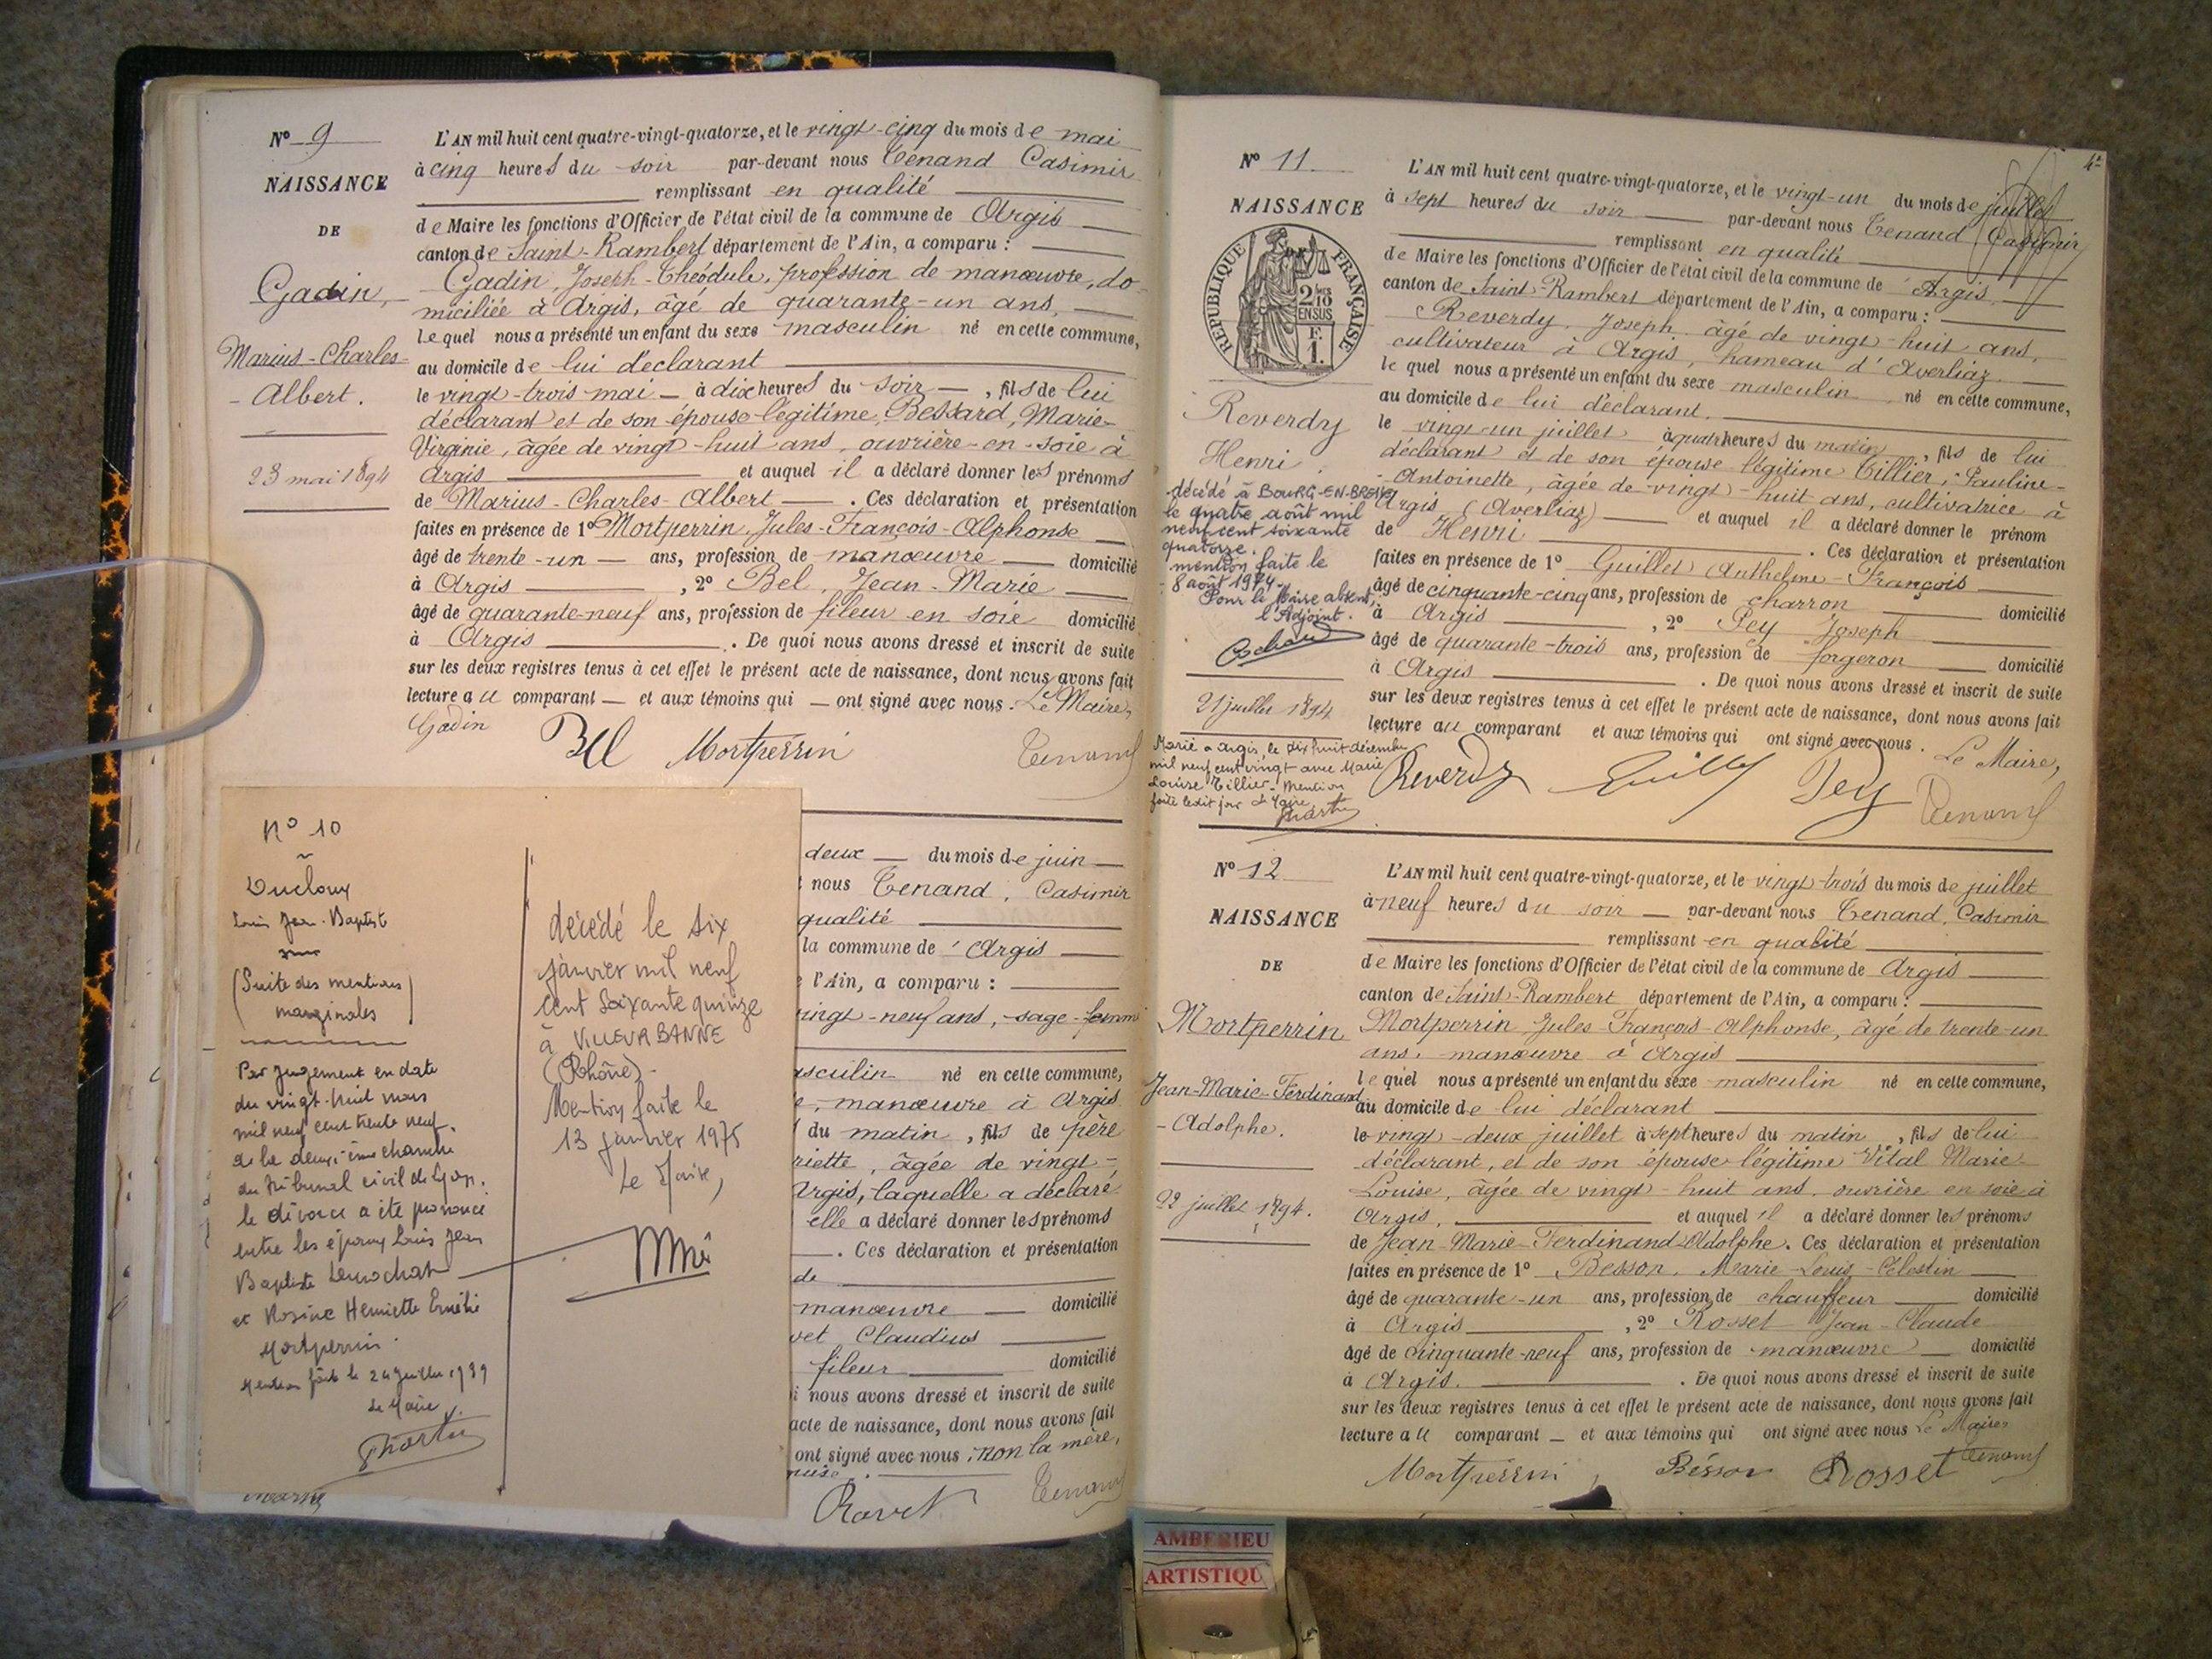 Nº 9
NAISSANCE
DE
Gadin,
Marius-Charles-
-Albert.
23 mai 1894
L'AN mil huit cent quatre-vingt-quatorze, et le vingt-cinq du mois de mai
à cinq heures du soir par-devant nous Tenand Casimir
remplissant en qualité
de Maire les fonctions d'Officier de l'état civil de la commune de Argis
canton de Saint-Rambert département de l'Ain, a comparu :
Gadin, Joseph-Théodule, profession de manœuvre, do-
miciliée à Argis, âgé de quarante-un ans,
lequel nous a présenté un enfant du sexe masculin né en cette commune,
au domicile de lui déclarant
le vingt-trois mai à dix heures du soir, fils de lui
déclarant et de son épouse légitime, Bessard, Marie-
Virginie, âgée de vingt-huit ans, ouvrière-en-soie à
Argis et auquel il a déclaré donner les prénoms
de Marius-Charles-Albert. Ces déclaration et présentation
faites en présence de 1º Mortperrin, Jules-François-Alphonse
âgé de trente-un ans, profession de manœuvre domicilié
à Argis, 2º Bel, Jean-Marie
âgé de quarante-neuf ans, profession de fileur en soie domicilié
à Argis. De quoi nous avons dressé et inscrit de suite
sur les deux registres tenus à cet effet le présent acte de naissance, dont nous avons fait
lecture au comparant et aux témoins qui ont signé avec nous. Le Maire,
Gadin Bel Mortperrin Tenand
Nº 10
Louis Jean-Baptiste
(Suite des mentions
marginales)
Par jugement en date
du vingt-huit mars
mil neuf cent trente neuf,
de la deuxième chambre
du tribunal civil de Lyon,
le divorce a été prononcé
entre les époux Louis Jean
Baptiste
et Rosine Henriette Emélie
Mortperrin.
Mention faite le 24 juillet 1939
Le Maire
décédé le six
janvier mil neuf
cent soixante quinze
à VILLEURBANNE
(Rhône)-
Mention faite le
13 janvier 1975
Le Maire,
deux du mois de juin
nous Tenand, Casimir
qualité
la commune de Argis
l'Ain, a comparu :
vingt-neuf ans, sage-femme
masculin né en cette commune,
manœuvre à Argis
du matin, fils de père
riette, âgée de vingt-
Argis, laquelle a déclaré
elle a déclaré donner les prénoms
. Ces déclaration et présentation
de
manœuvre domicilié
vet Claudius
fileur domicilié
nous avons dressé et inscrit de suite
acte de naissance, dont nous avons fait
ont signé avec nous, non la mère,
Ravet Tenand
Nº 11
NAISSANCE
REPUBLIQUE FRANÇAISE
2/10
EN SUS
F.
1.
Reverdy
Henri
décédé à BOURG-EN-BRESSE
le quatre août mil
neuf cent soixante
quatorze.
mention faite le
8 août 1974.
Pour le Maire absent,
l'Adjoint.
21 juillet 1894
Marié à Argis, le dix huit décembre
mil neuf cent vingt avec Marie
Louise Tillier. Mention
faite ledit jour Le Maire,
4e
L'AN mil huit cent quatre-vingt-quatorze, et le vingt-un du mois de juillet
à sept heures du soir par-devant nous Tenand Casimir
remplissant en qualité
de Maire les fonctions d'Officier de l'état civil de la commune de Argis
canton de Saint-Rambert département de l'Ain, a comparu :
Reverdy, Joseph âgé de vingt-huit ans,
cultivateur à Argis, hameau d'Averliaz.
lequel nous a présenté un enfant du sexe masculin né en cette commune,
au domicile de lui déclarant.
le vingt-un juillet à quatre heures du matin, fils de lui
déclarant et de son épouse légitime Tillier, Pauline-
Antoinette, âgée de vingt-huit ans, cultivatrice à
Argis (Averliaz) et auquel il a déclaré donner le prénom
de Henri. Ces déclaration et présentation
faites en présence de 1º Guillet Anthelme-François
âgé de cinquante-cinq ans, profession de charron domicilié
à Argis, 2º Pey Joseph
âgé de quarante-trois ans, profession de forgeron domicilié
à Argis. De quoi nous avons dressé et inscrit de suite
sur les deux registres tenus à cet effet le présent acte de naissance, dont nous avons fait
lecture au comparant et aux témoins qui ont signé avec nous. Le Maire,
Reverdy Guillet Pey Tenand
Nº 12
NAISSANCE
DE
Mortperrin
Jean-Marie-Ferdinand
-Adolphe.
22 juillet 1894.
L'AN mil huit cent quatre-vingt-quatorze, et le vingt-trois du mois de juillet
à neuf heures du soir par-devant nous Tenand, Casimir
remplissant en qualité
de Maire les fonctions d'Officier de l'état civil de la commune de Argis
canton de Saint-Rambert département de l'Ain, a comparu :
Mortperrin, Jules-François-Alphonse, âgé de trente-un
ans, manœuvre à Argis
lequel nous a présenté un enfant du sexe masculin né en cette commune,
au domicile de lui déclarant
le vingt-deux juillet à sept heures du matin, fils de lui
déclarant, et de son épouse légitime Vital Marie-
Louise, âgée de vingt-huit ans, ouvrière en soie à
Argis, et auquel il a déclaré donner les prénoms
de Jean-Marie-Ferdinand-Adolphe. Ces déclaration et présentation
faites en présence de 1º Besson, Marie-Louis-Célestin
âgé de quarante-un ans, profession de chauffeur domicilié
à Argis, 2º Rosset Jean-Claude
âgé de cinquante-neuf ans, profession de manœuvre domicilié
à Argis. De quoi nous avons dressé et inscrit de suite
sur les deux registres tenus à cet effet le présent acte de naissance, dont nous avons fait
lecture au comparant et aux témoins qui ont signé avec nous Le Maire
Mortperrin, Besson Rosset Tenand
AMBERIEU
ARTISTIQU